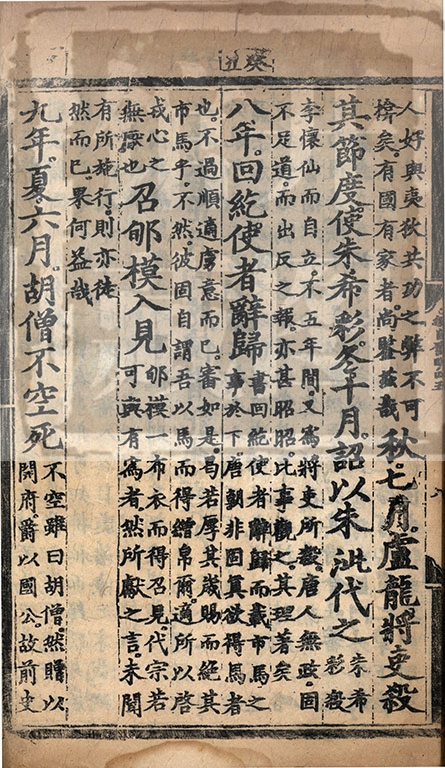 癸丑
人好與夷狄共功之弊不可
揜矣。有國有家者。尚鑒茲哉
秋。七月。盧龍將吏殺
其節度使朱希彩。冬十月。詔以朱泚代之
朱希
彩殺
李懷仙而自立。不五年間。又爲將吏所殺。唐人無政。固
不足道。而出反之報。亦甚昭昭。比事觀之。其理著矣
八年。回紇使者辭歸
書回紇使者辭歸而載市馬之
事於下。唐朝非固真欲得馬者
也。不過順適虜意而已。審如是。曷若厚其歲賜而絕其
市馬乎。不然。彼固自謂吾以馬而得繒帛爾。適所以啓
戎心之
無厭也
召郇模入見
郇模一布衣而得召見。代宗若
可與有爲者。然所獻之言。未聞
有所施行。則亦徒
然而已。果何益哉
九年。夏。六月。胡僧不空死
不空雖曰胡僧。然贈以
開府。爵以國公。故前史